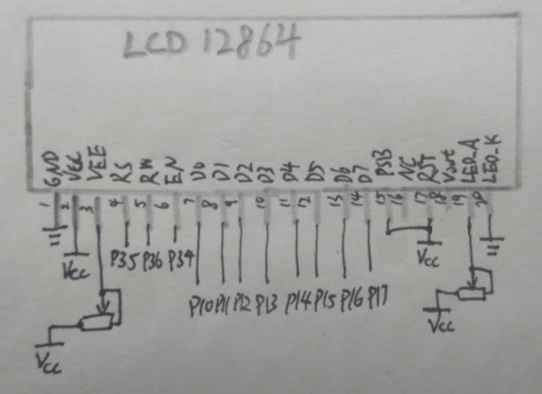 LCD 12864
GND VCC VEE RS RW EN D0 D1 D2 D3 D4 D5 D6 D7 PSB NC RST Vout LED_A LED_K
1 2 3 4 5 6 7 8 9 10 11 12 13 14 15 16 17 18 19 20
P35 P36 P34
VCC
VCC
P10 P11 P12 P13 P14 P15 P16 P17
VCC
VCC